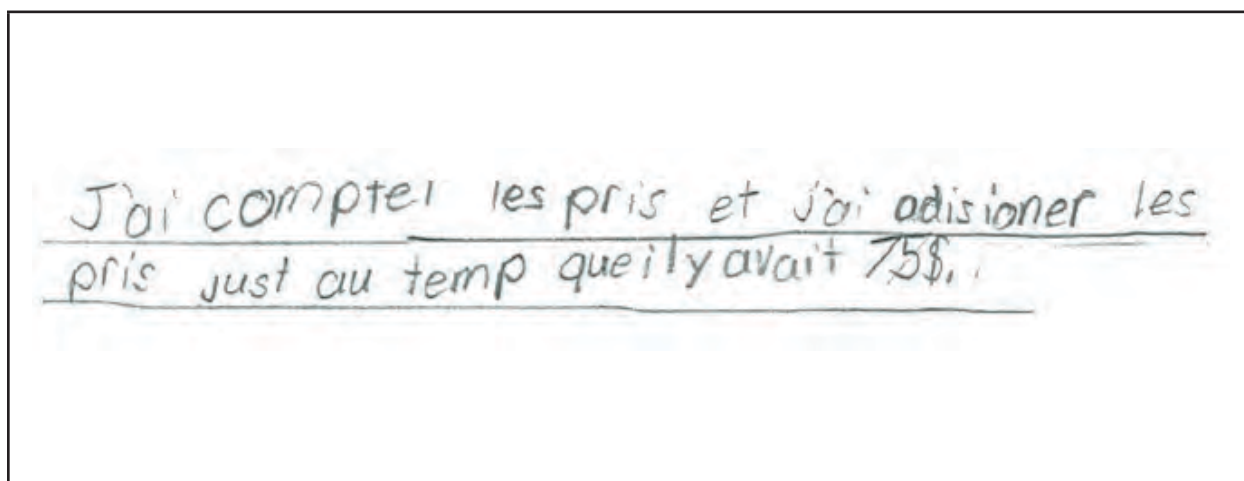 J'ai compter les pris et j'ai adisioner les
pris just au temp que il y avait 75$.